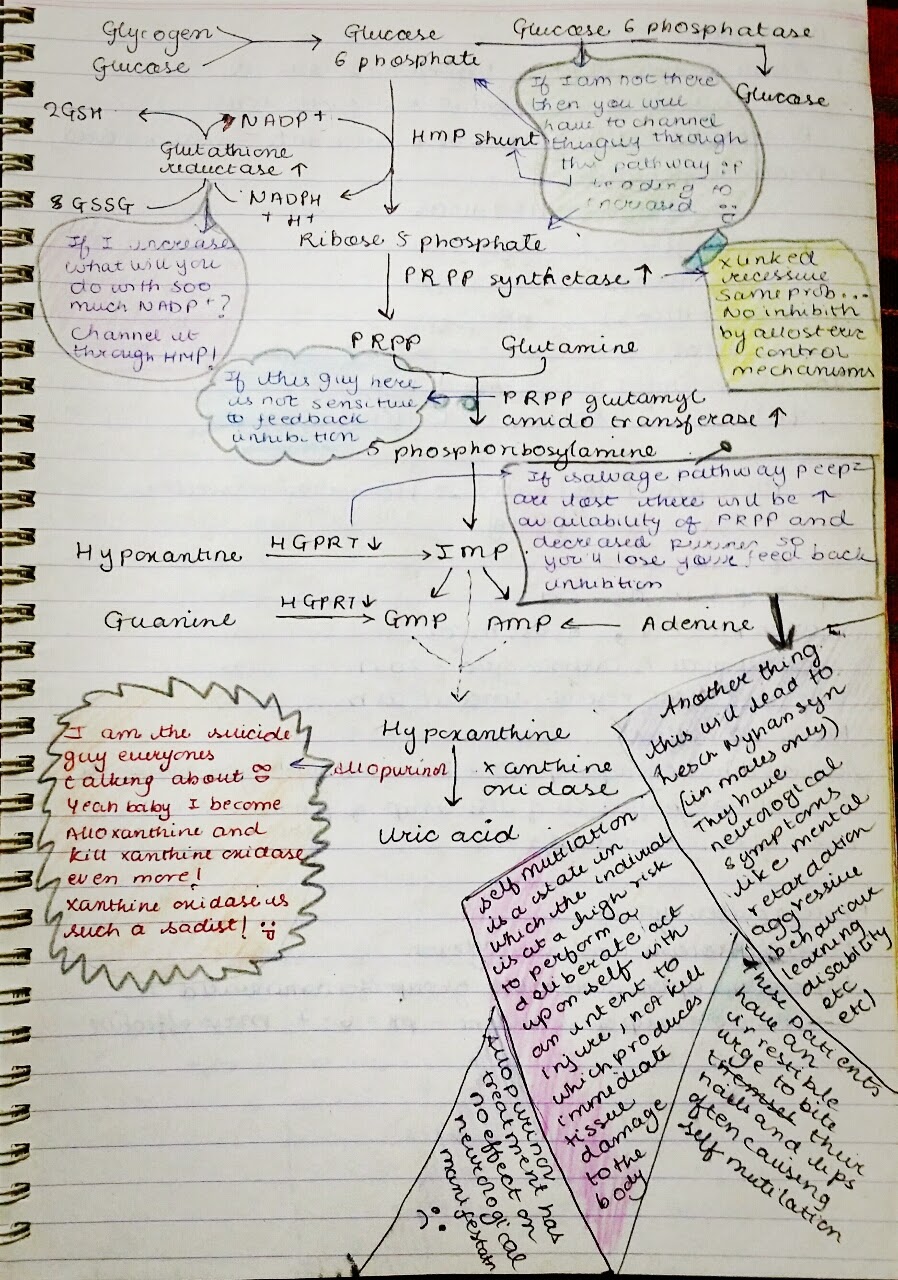 Glycogen → Glucose 6 phosphate → Glucose 6 phosphatase
Glucose
Glucose
2GSH
NADP+
Glutathione
reductase ↑
8 GSSG
NADPH
+ H+
HMP shunt
If I am not there
then you will
have to channel
this guy through
this pathway :P
leading to
increased
If I increase
what will you
do with soo
much NADP+?
Channel it
through HMP!
Ribose 5 phosphate
PRPP synthetase ↑
x linked
recessive
Same prob...
No inhibitn
by allosteric
control
mechanisms
PRPP
Glutamine
If this guy here
is not sensitive
to feedback
inhibition
PRPP glutamyl
amido transferase ↑
5 phosphoribosylamine
If salvage pathway peepz
are lost there will be ↑
availability of PRPP and
decreased purines so
you'll lose your feed back
inhibition
Hypoxantine
HGPRT ↓
IMP
Guanine
HGPRT ↓
GMP
AMP
Adenine
Hypoxanthine
Allopurinol
xanthine
oxidase
Uric acid
I am the suicide
guy everyones
talking about
Yeah baby I become
Alloxanthine and
kill xanthine oxidase
even more!
xanthine oxidase is
such a sadist! :P
Another thing
this will lead to
Lesch Nyhan syn
(in males only)
They have
neurological
symptoms
like mental
retardation
aggressive
behaviour
learning
disability
etc
etc)
These patients
have an
irrestible
urge to bite
their
nails and lips
often causing
self mutilation
self mutilation
is a state in
which the individual
is at a high risk
to perform a
deliberate act
upon self with
an intent to
injure, not kill
which produces
immediate
tissue
damage
to the
body
Allopurinol
treatment has
no effect on
neurological
manifestatn
:(